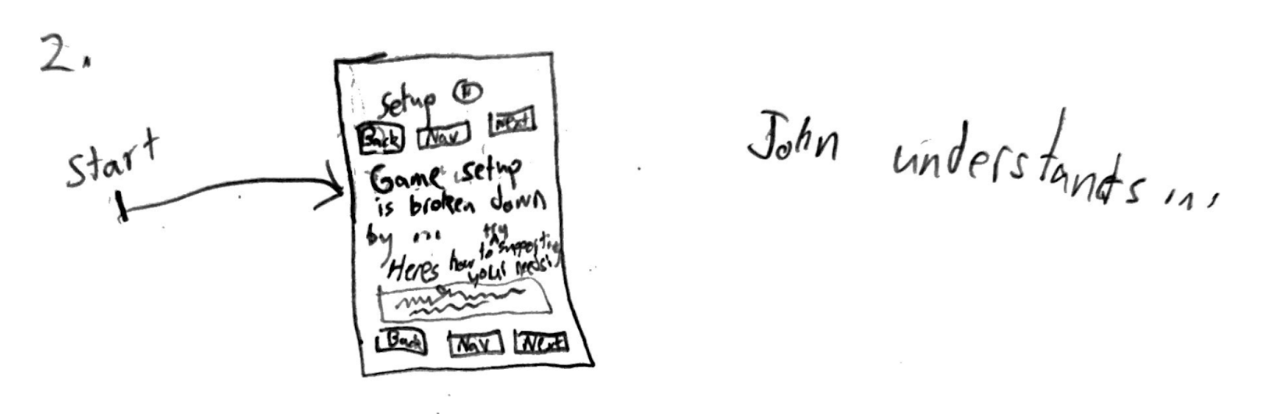 2.
Start
Setup
Back Nav Next
Game setup
is broken down
by ...
try
Heres how to supporting
your needs
Back Nav Next
John understands ...